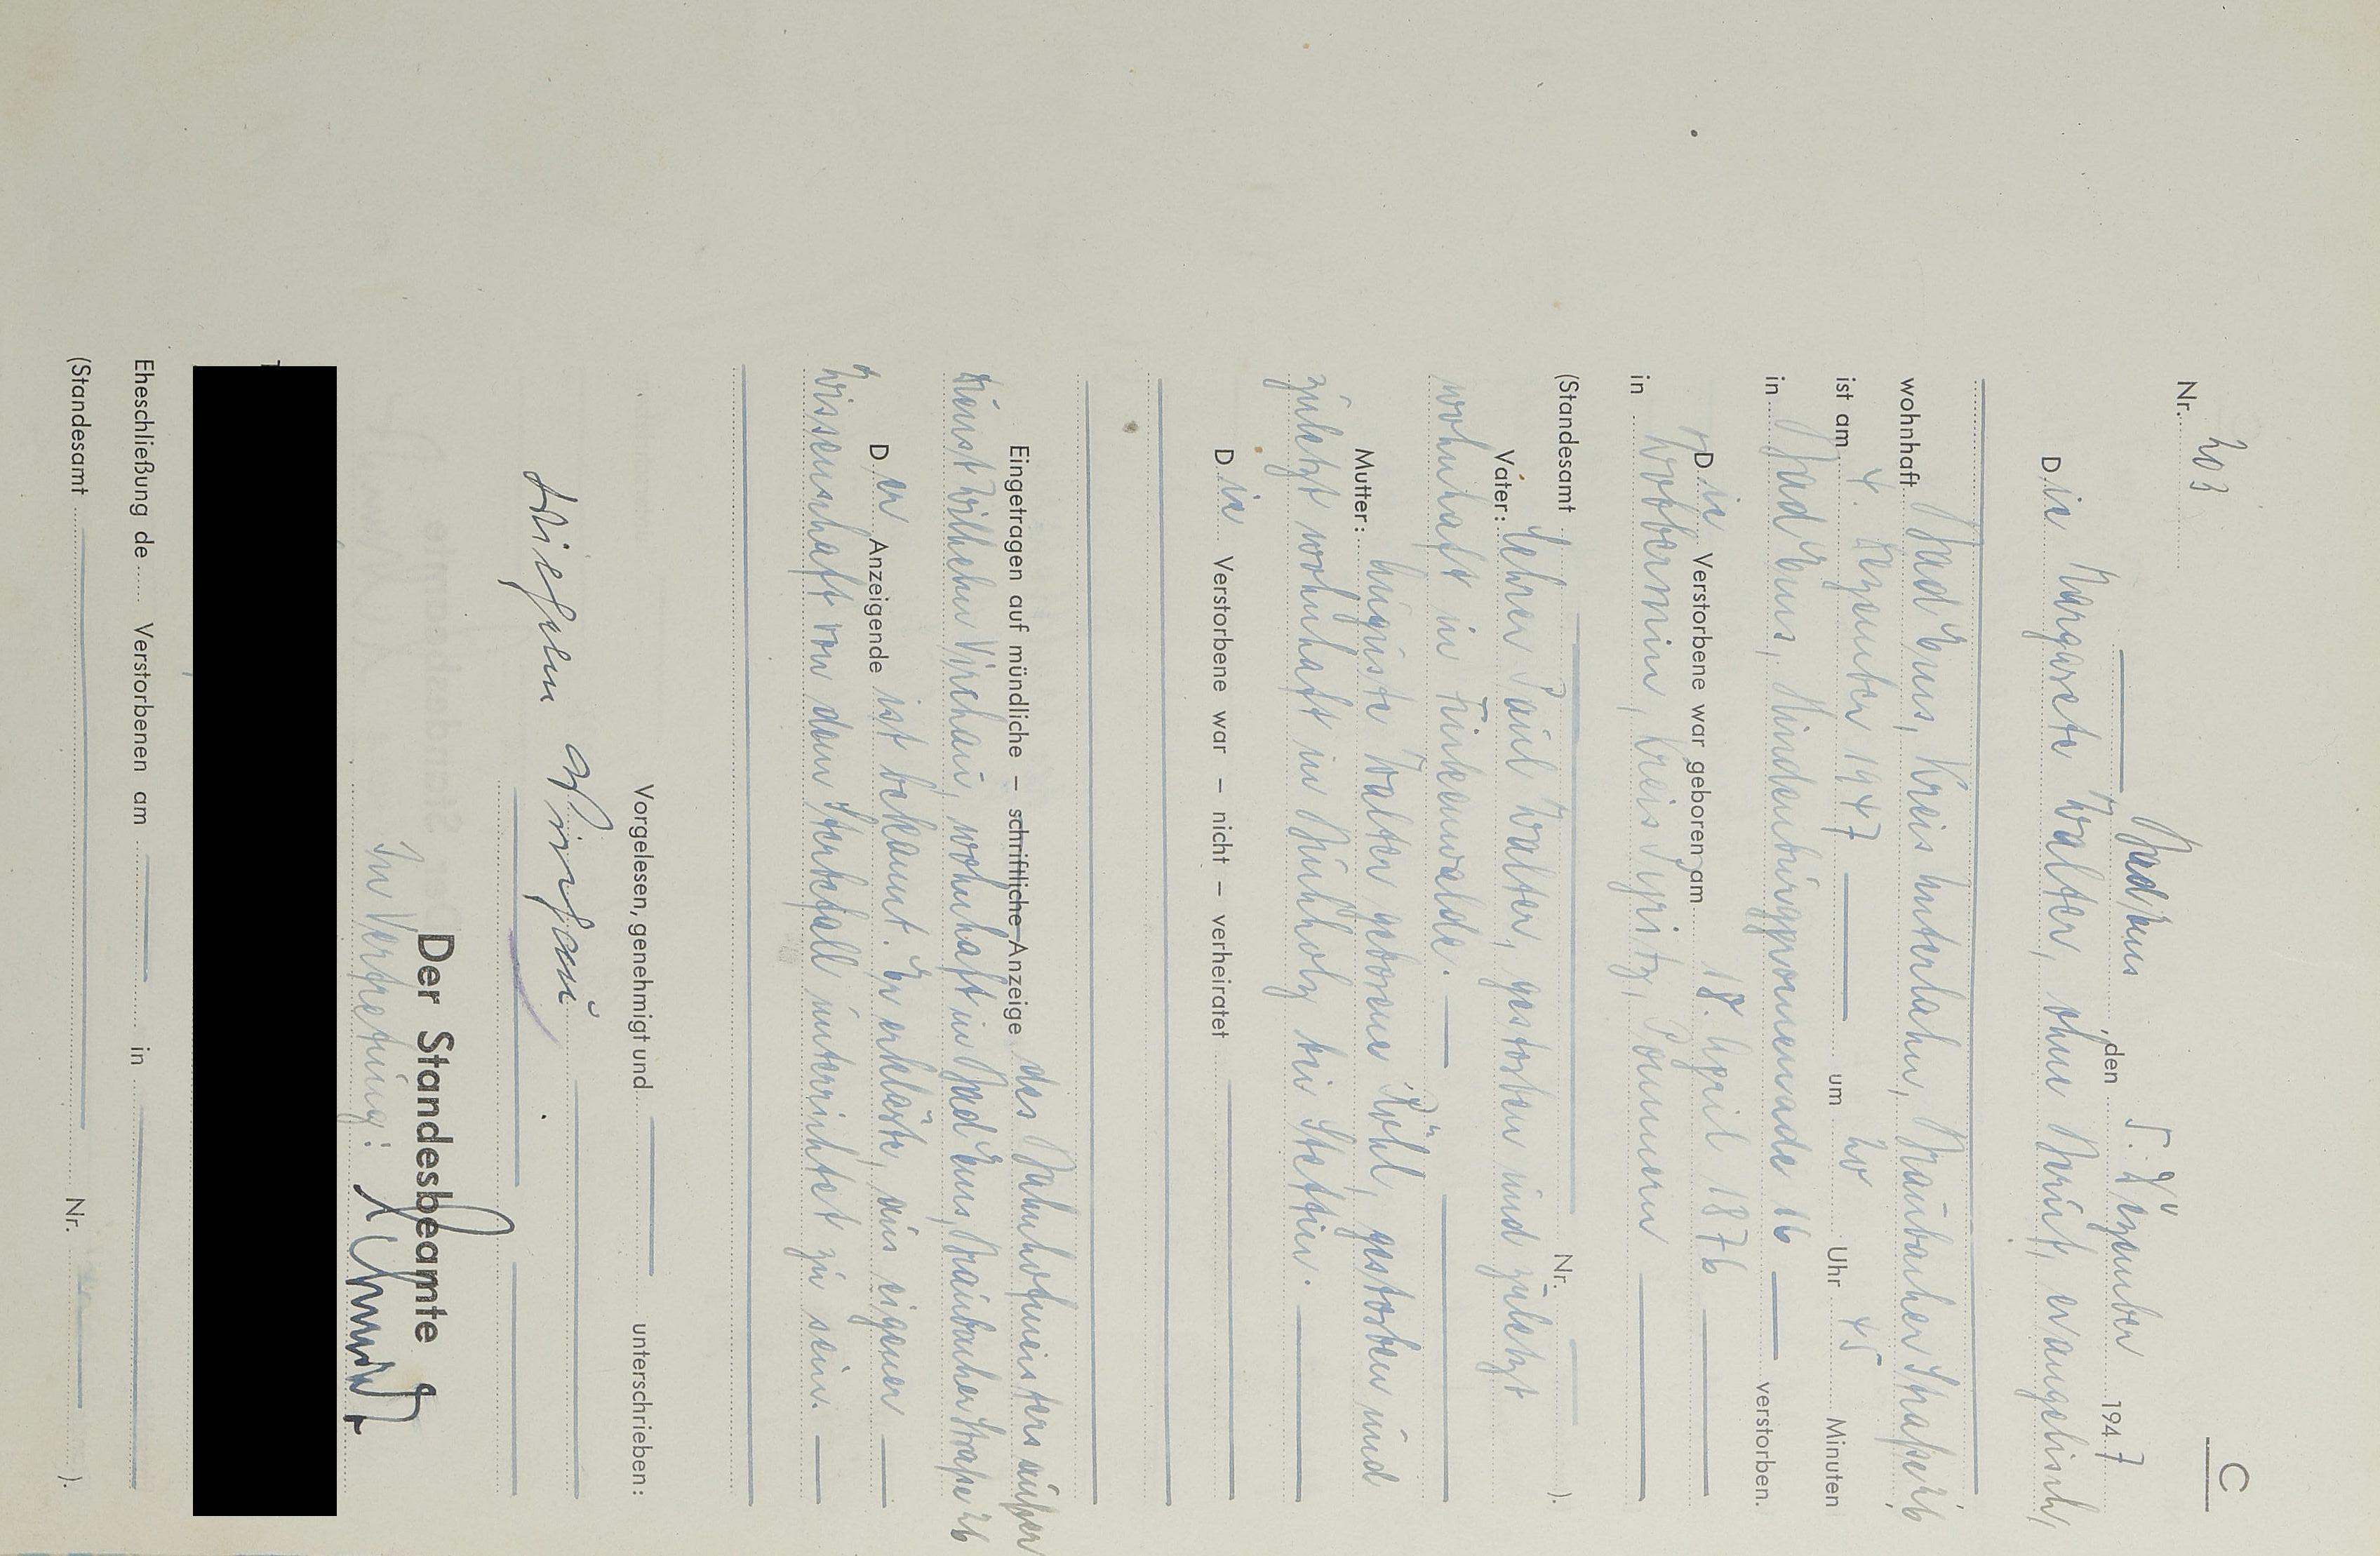 C
Nr. 203
Bad Ems, den 5. Dezember 1947
Die Margarete Walter, ohne Beruf, evangelisch,
wohnhaft Bad Ems, Kreis Unterlahn, Braubacher Straße 26,
ist am 4. Dezember 1947 um 20 Uhr 45 Minuten
in Bad Ems, Hindenburgpromenade 16 verstorben.
Die Verstorbene war geboren am 18. April 1876
in Kreis Pyritz, Pommern
(Standesamt Nr. ).
Vater: Lehrer Paul Walter, gestorben und zuletzt
wohnhaft in Finkenwalde.
Mutter: Auguste Walter geborene gestorben und
zuletzt wohnhaft in Buchholz bei Stettin.
Die Verstorbene war – nicht – verheiratet
Eingetragen auf mündliche – schriftliche Anzeige des Bahnhofmeisters außer
Dienst Wilhelm Virchau, wohnhaft in Bad Ems, Braubacher Straße 26
Der Anzeigende ist bekannt. Er erklärte, aus eigener
Wissenschaft von dem Sterbefall unterrichtet zu sein.
Vorgelesen, genehmigt und unterschrieben:
Wilhelm Virchau
Der Standesbeamte
In Vertretung:
Eheschließung de Verstorbenen am in
(Standesamt Nr. ).